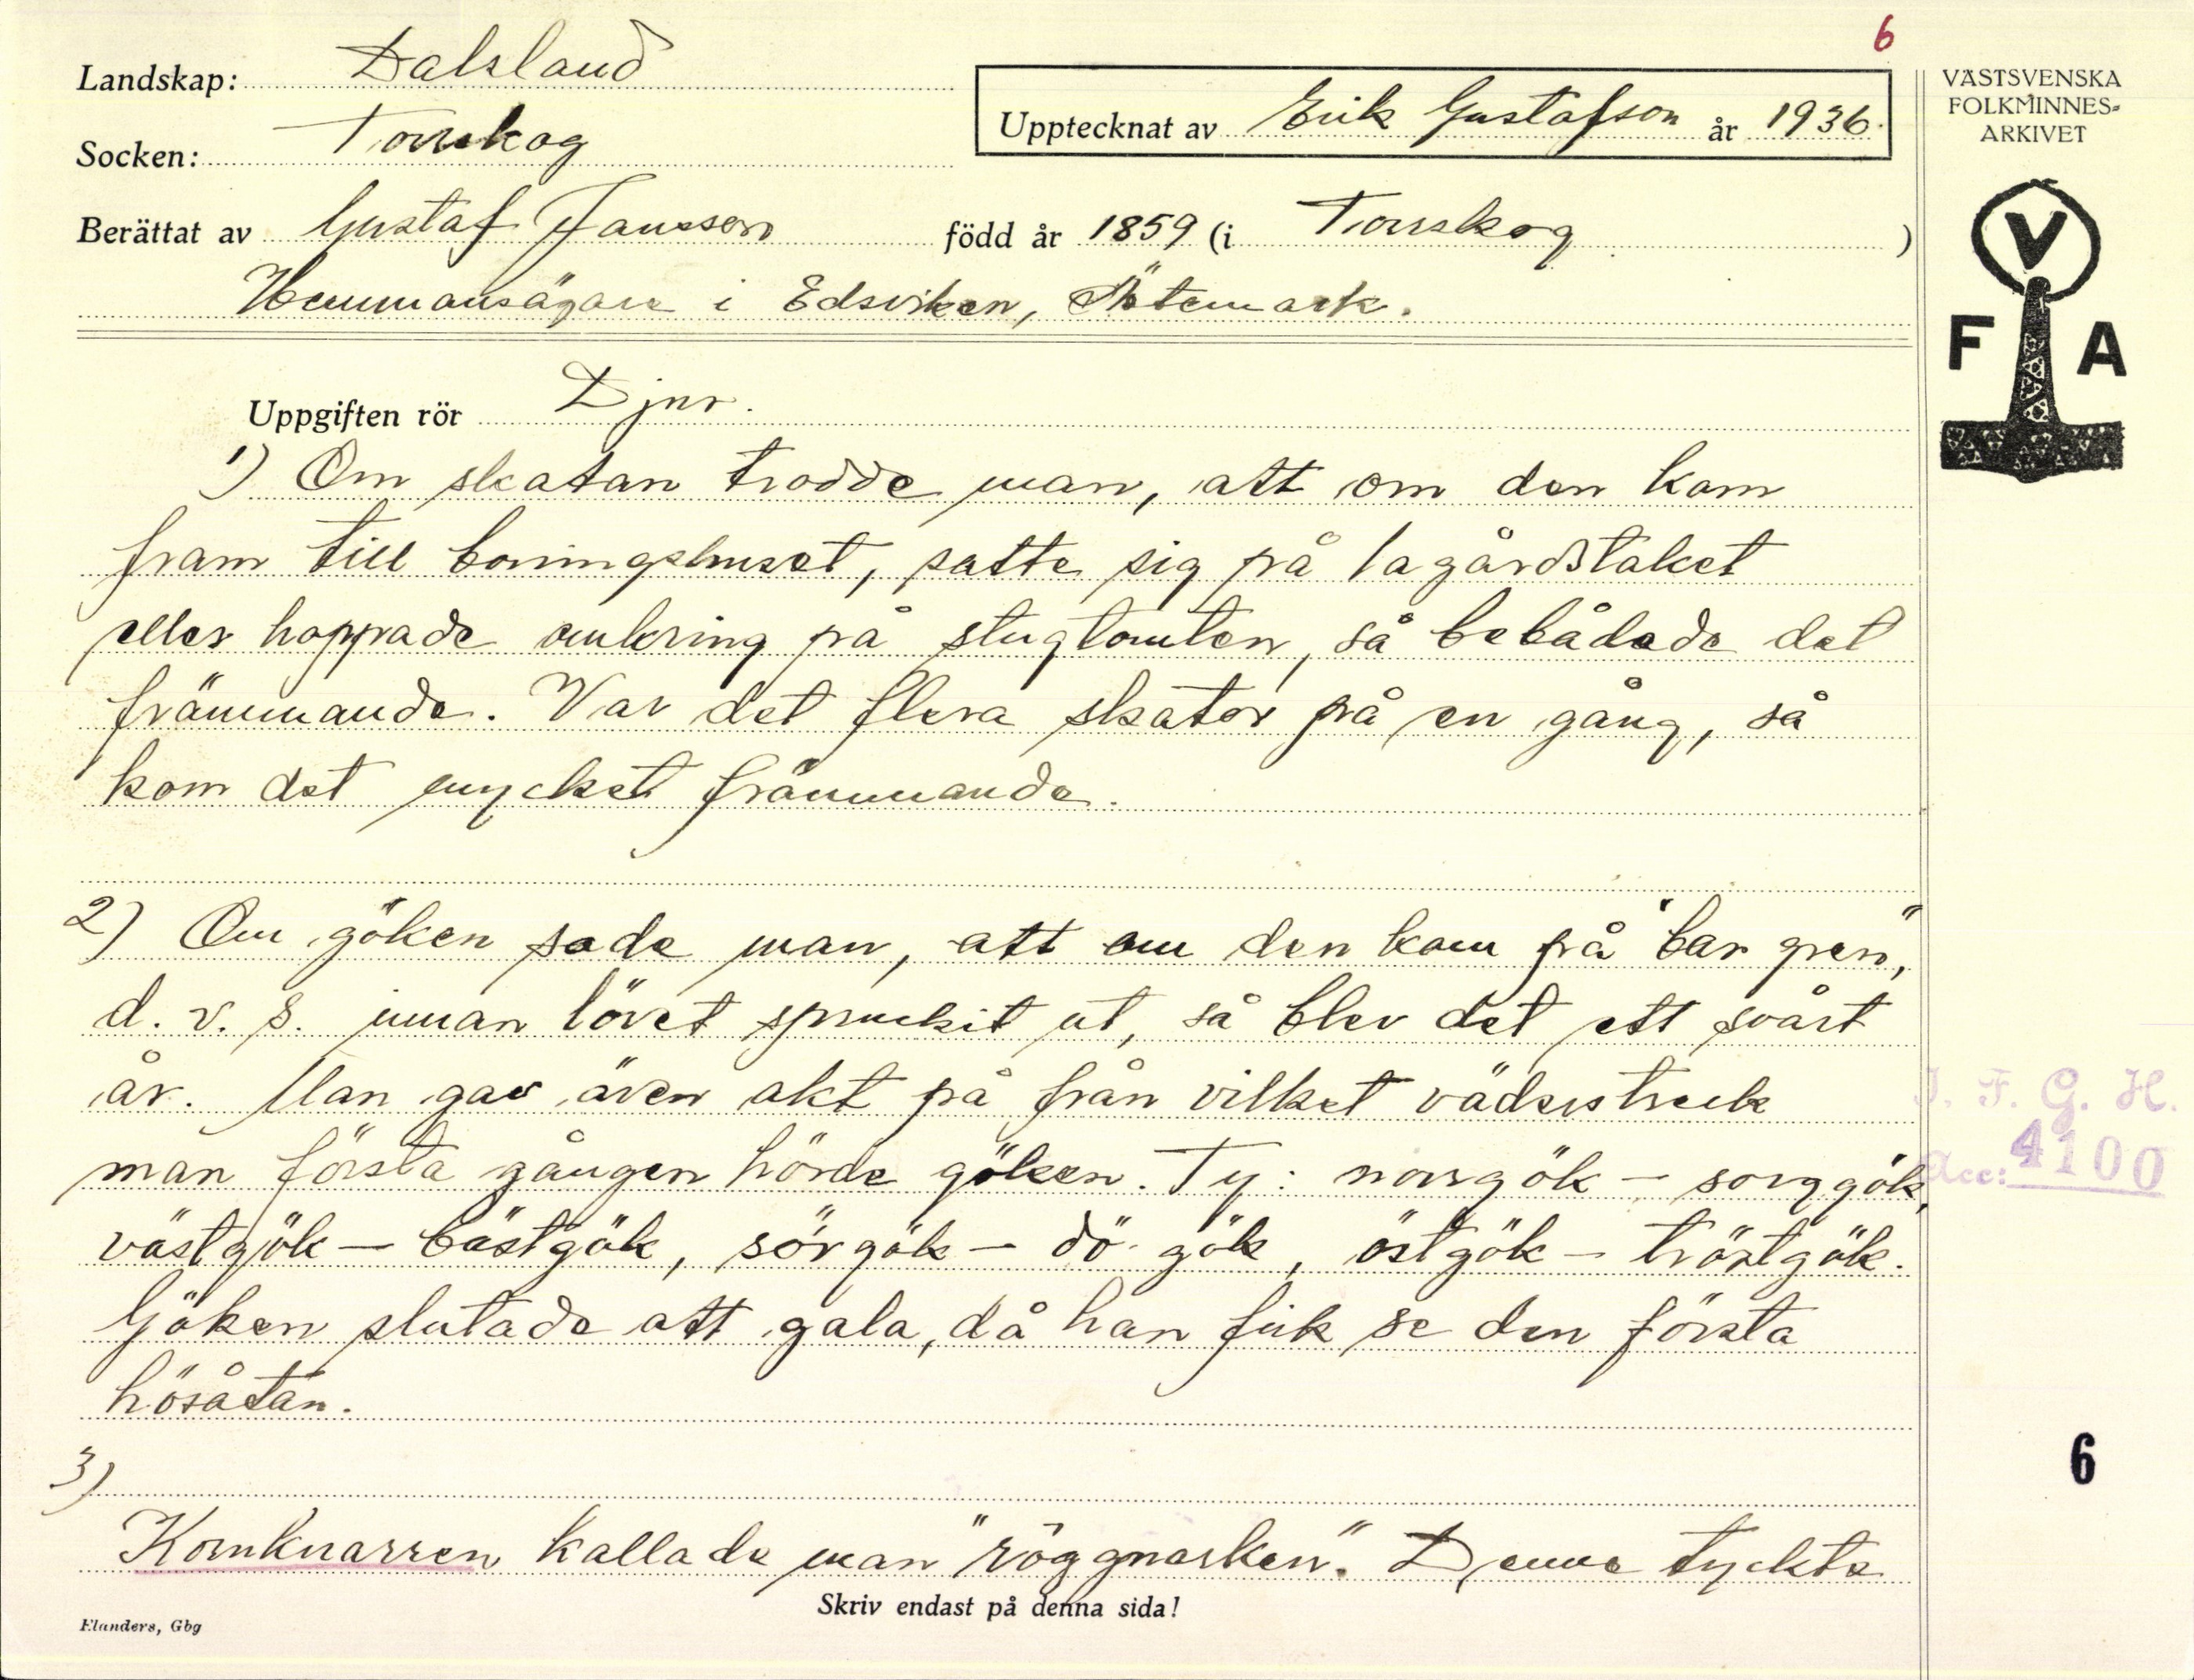 6
Landskap: Dalsland
Socken: Torrskog
Upptecknat av Erik Gustafson år 1936.
VÄSTSVENSKA
FOLKMINNES-
ARKIVET
Berättat av Gustaf Jansson född år 1859 (i Torrskog )
Hemmansägare i Edsviken, Ötemark.
V
F A
Uppgiften rör Djur.
1) Om skatan trodde man, att om den kom
fram till boningshuset, satte sig på lagårdstaket
eller hoppade omkring på stugtomten, så bebådade det
främmande. Var det flera skator på en gång, så
kom det mycket främmande.
2) Om göken sade man, att om den kom på "bar gren",
d. v. s. innan lövet spruckit ut, så blev det ett svårt
år. Man gav även akt på från vilket väderstreck
man första gången hörde göken. Ty: norrgök – sorggök,
västgök – bästgök, sörgök – dö-gök, östgök – tröstgök.
Göken slutade att gala, då han fick se den första
hösåtan.
I. F. G. H.
Acc: 4100
6
3)
Kornknarren kallade man "röggnarken". Denne tyckte
Skriv endast på denna sida!
Elanders, Gbg